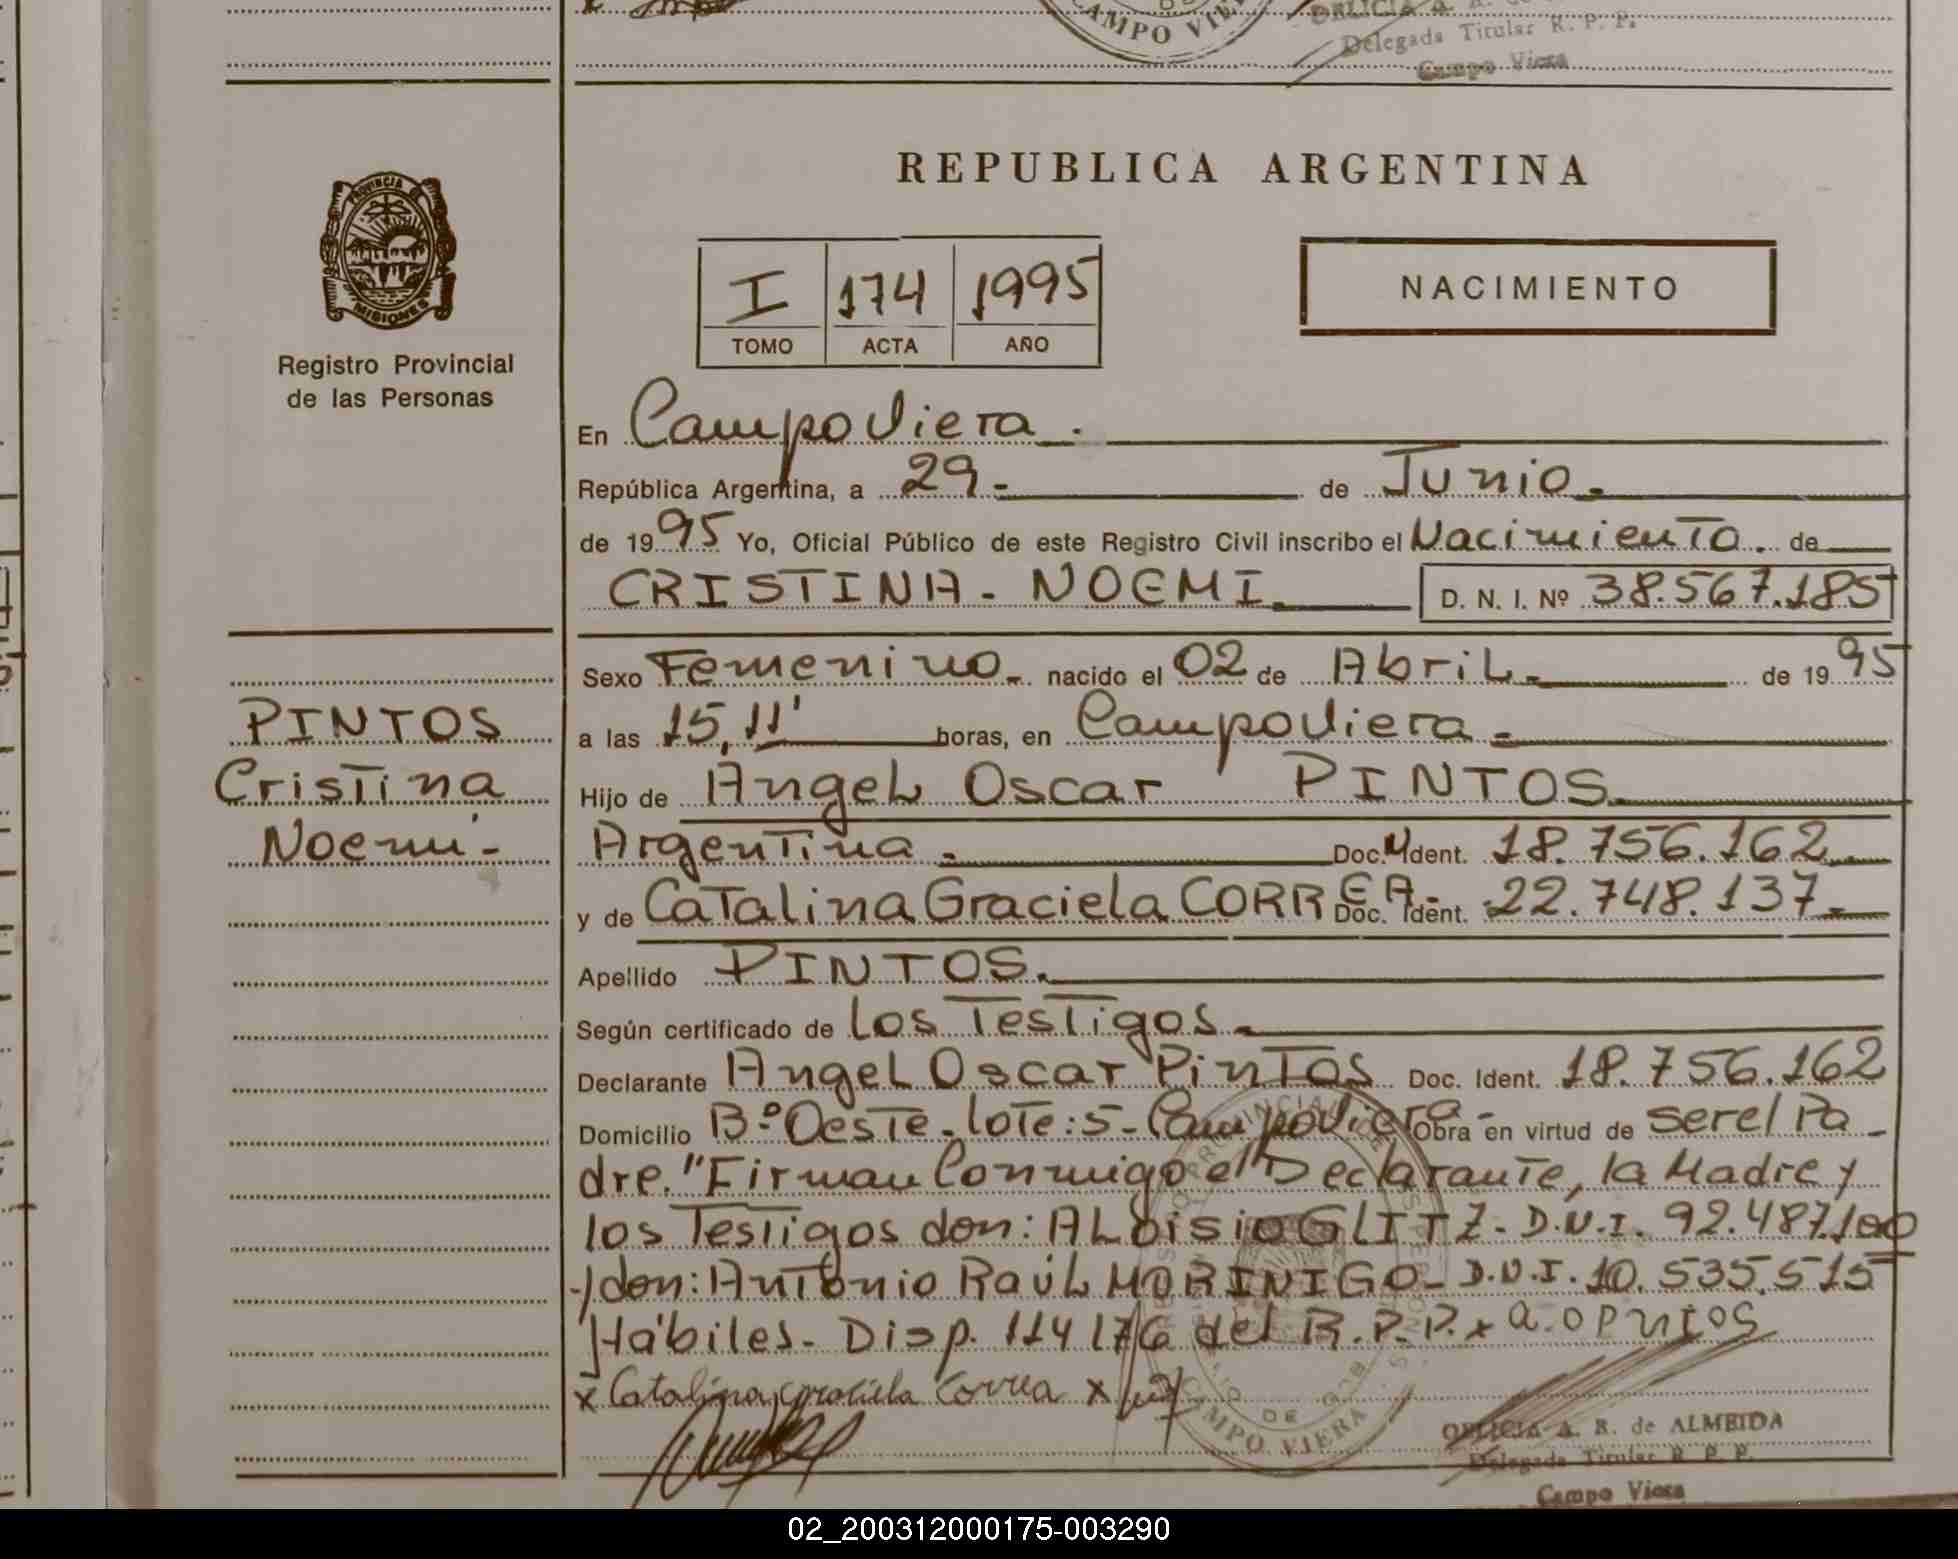 CAMPO VIERA
DELICIA A.
Delegada Titular R. P. P.
Campo Viera
REPUBLICA ARGENTINA
PROVINCIA
MISIONES
Registro Provincial
de las Personas
I 174 1995
TOMO ACTA AÑO
NACIMIENTO
En Campo Viera.
República Argentina, a 29- de Junio.
de 1995 Yo, Oficial Público de este Registro Civil inscribo el Nacimiento. de
CRISTINA - NOEMI. D. N. I. Nº 38.567.185
Sexo Femenino. nacido el 02 de Abril. de 1995
a las 15,11' horas, en Campo Viera.
Hijo de Angel Oscar PINTOS.
Argentina. Doc. Ident. 18.756.162
y de Catalina Graciela CORREA- Doc. Ident. 22.748.137
Apellido PINTOS.
Según certificado de Los Testigos.
Declarante Angel Oscar Pintos Doc. Ident. 18.756.162
Domicilio Bº Oeste - Lote: 5 - Campo Viera - Obra en virtud de ser el Pa-
dre. "Firman Conmigo el Declarante, la Madre y
los Testigos don: ALOISIO GLITZ - D.N.I. 92.487.100
y don: Antonio Raúl MORINIGO - D.N.I. 10.535.515
Hábiles - Disp. 114/76 del R.P.P. x a. o pntos
x Catalina graciela Correa x
PINTOS
Cristina
Noemi -
CAMPO VIERA
DELICIA A. R. de ALMEIDA
Delegada Titular R. P. P.
Campo Viera
02_200312000175-003290